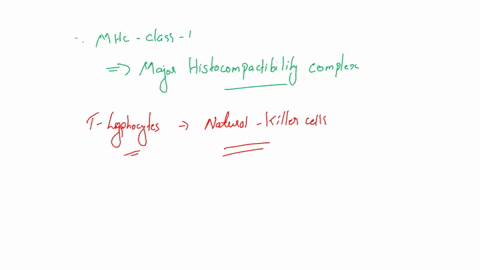 ∴ MHc - class - 1
=> Major Histocompactibility complex
T - Lyphocytes → Natural - Killer cells